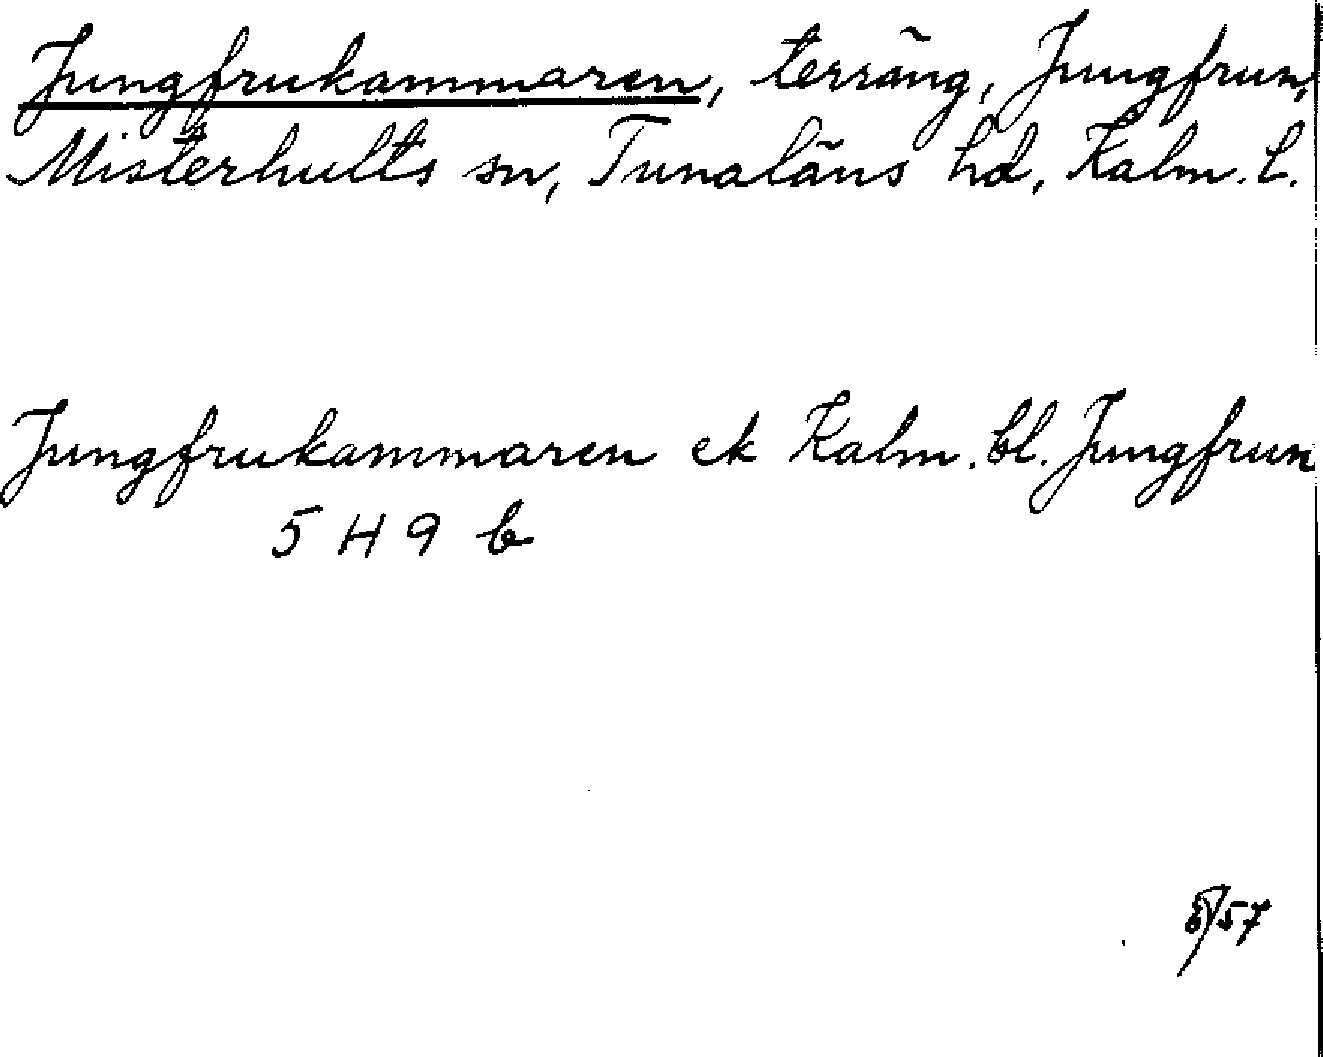 Jungfrukammaren, terräng, Jungfrun,
Misterhults sn, Tunaläns hd, Kalm. l.
Jungfrukammaren ek Kalm. bl. Jungfrun
5 H 9 b